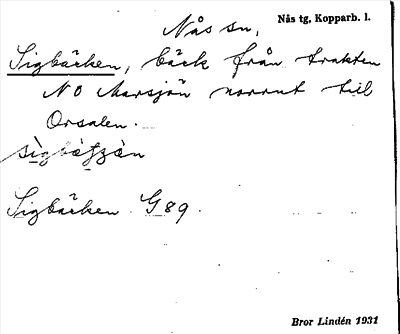 Nås sn, Nås tg, Kopparb. l.
Sigbäcken, bäck från trakten
NO Marsjön norrut till
Orsalen.
Sigbäcken G89.
Bror Lindén 1931